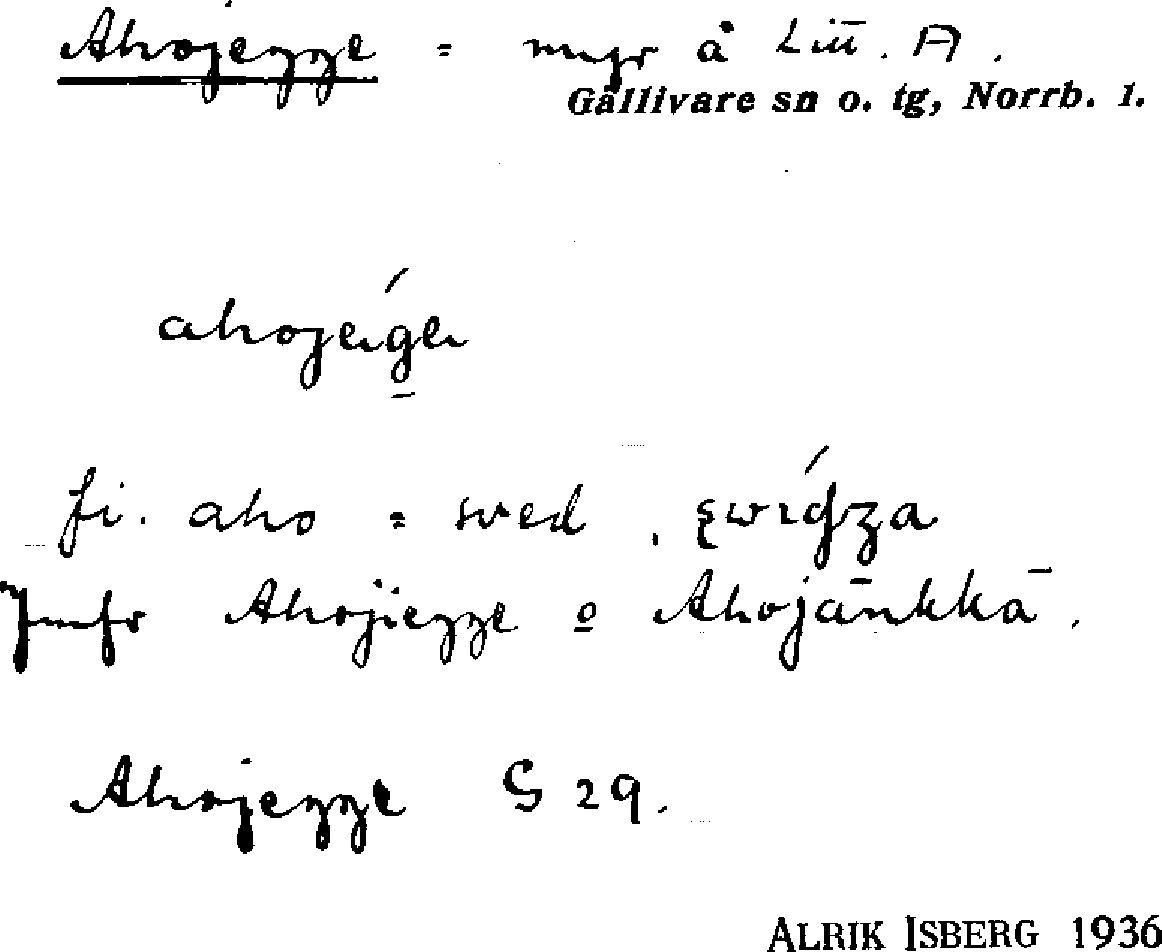 Ahojegge = myr å Lit. A.
Gällivare sn o. tg, Norrb. l.
ahojege
fi. aho = sved
Jmfr Ahojiegge o Ahojänkkä.
Ahojegge S 29.
ALRIK ISBERG 1936